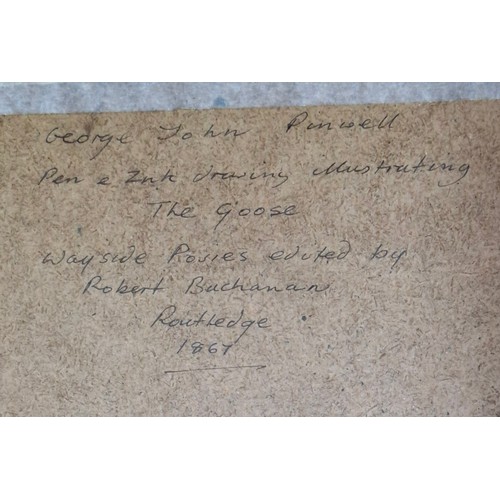 George John Pinwell
Pen & Ink drawing illustrating
The Goose
Wayside Posies edited by
Robert Buchanan
Routledge
1867